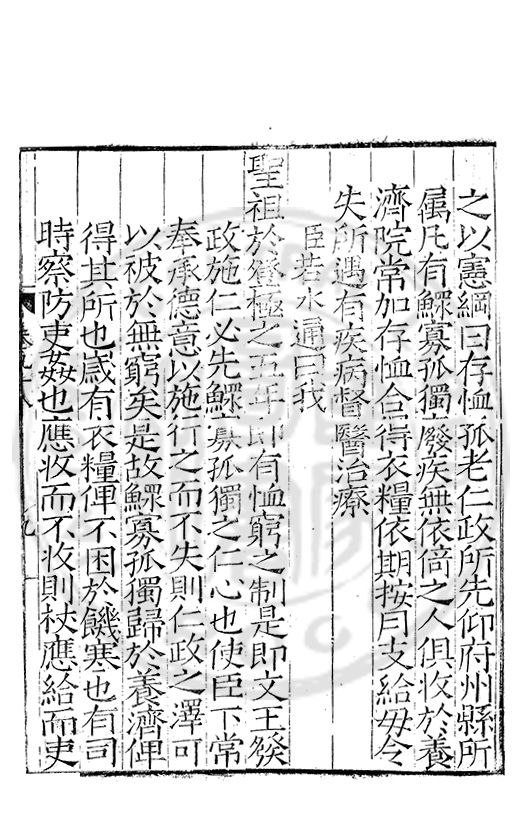 之以憲綱曰存恤孤老仁政所先仰府州縣所
属凡有鰥寡孤獨癈疾無依倚之人俱收於養
濟院常加存恤合得衣糧依期按月支給毋令
失所遇有疾病督醫治療
臣若水通曰我
聖祖於登極之五年即有恤窮之制是即文王發
政施仁必先鰥寡孤獨之仁心也使臣下常
奉承德意以施行之而不失則仁政之澤可
以被於無窮矣是故鰥寡孤獨歸於養濟俾
得其所也嵗有衣糧俾不困於饑寒也有司
時察防吏姦也應收而不收則杖應給而吏